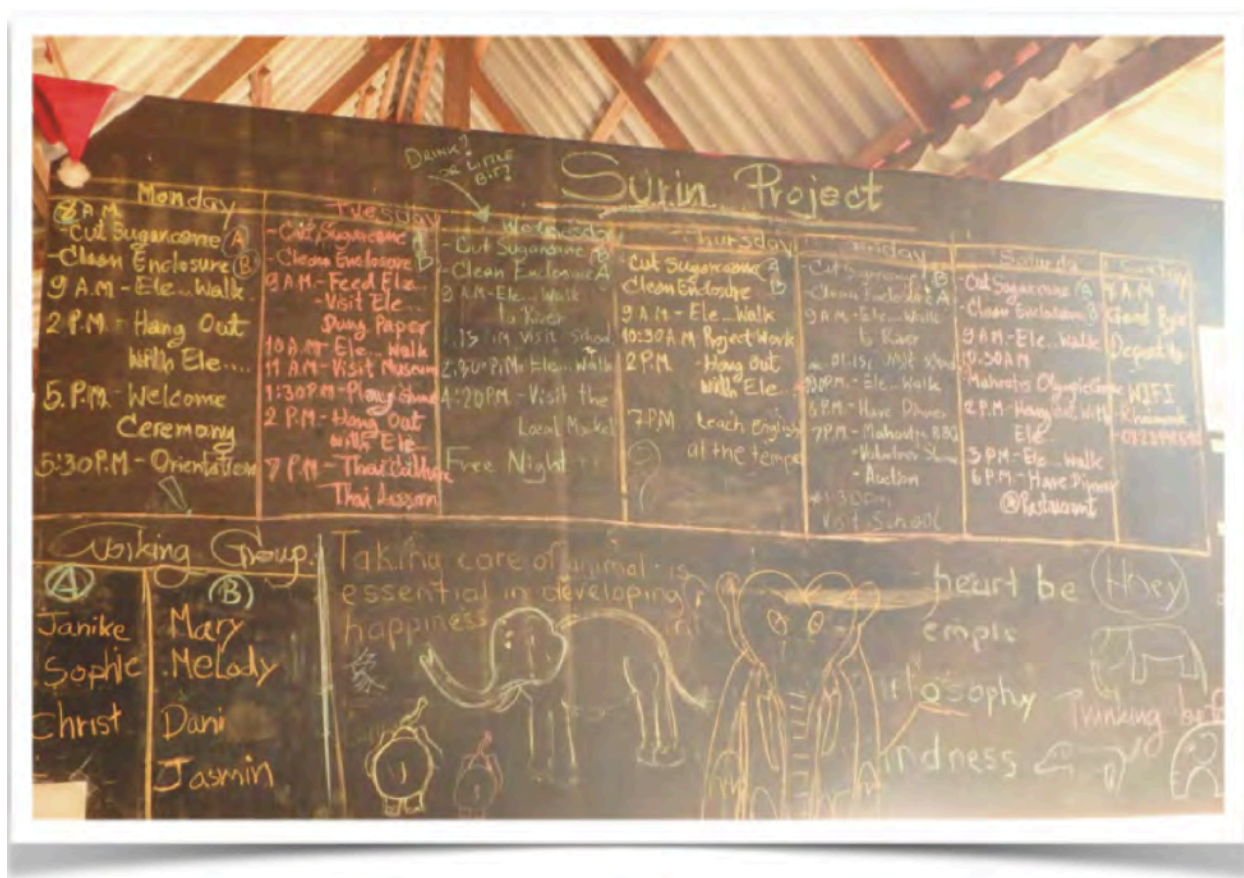 Surin Project
DRINK?
LITTLE
BIT?
Monday
8 A.M.
-Cut Sugarcane A
-Clean Enclosure B
9 A.M - Ele... Walk
2 P.M - Hang Out
With Ele....
5. P.M. - Welcome
Ceremany
5:30 P.M - Orientation
Tuesday
-Cut Sugarcane A
-Clean Enclosure B
9 A.M - Feed Ele...
-Visit Ele...
Dung Paper
10 A.M - Ele... Walk
11 A.M - Visit Museum
1:30 P.M -
2 P.M - Hang Out
with Ele
7 P.M - Thai Culture
Thai Lesson
Wednesday
-Cut Sugarcane B
-Clean Enclosure A
9 A.M - Ele... Walk
to River
Visit School
Ele... Walk
4:20 P.M - Visit the
Local Market
Free Night
Thursday
-Cut Sugarcane A
Clean Enclosure B
9 A.M - Ele... Walk
10:30 A.M Project Work
2 P.M - Hang Out
With Ele...
7 P.M teach English
at the temple
Friday
-Cut Sugarcane B
-Clean Enclosure A
9 A.M - Ele... Walk
to River
Visit School
P.M. - Ele... Walk
6 P.M - Have Dinner
7 P.M - Mahouts BBQ
-Volunteer Show
- Auction
Visit School
Saturday
Cut Sugarcane A
-Clean Enclosure B
9 A.M - Ele.. Walk
10.30 A.M
Mahouts Olympic Game
2 P.M - Hang Out With
Ele
3 P.M - Ele.. Walk
6 P.M - Have Dinner
@Restaurant
Sunday
A.M
Good Bye
Depart to
WIFI
Working Group.
A
Janike
Sophie
Christ
B
Mary
Melody
Dani
Jasmin
Taking care of animal is
essential in developing
happiness
heart be
emple
ilosophy
indness
Thinking